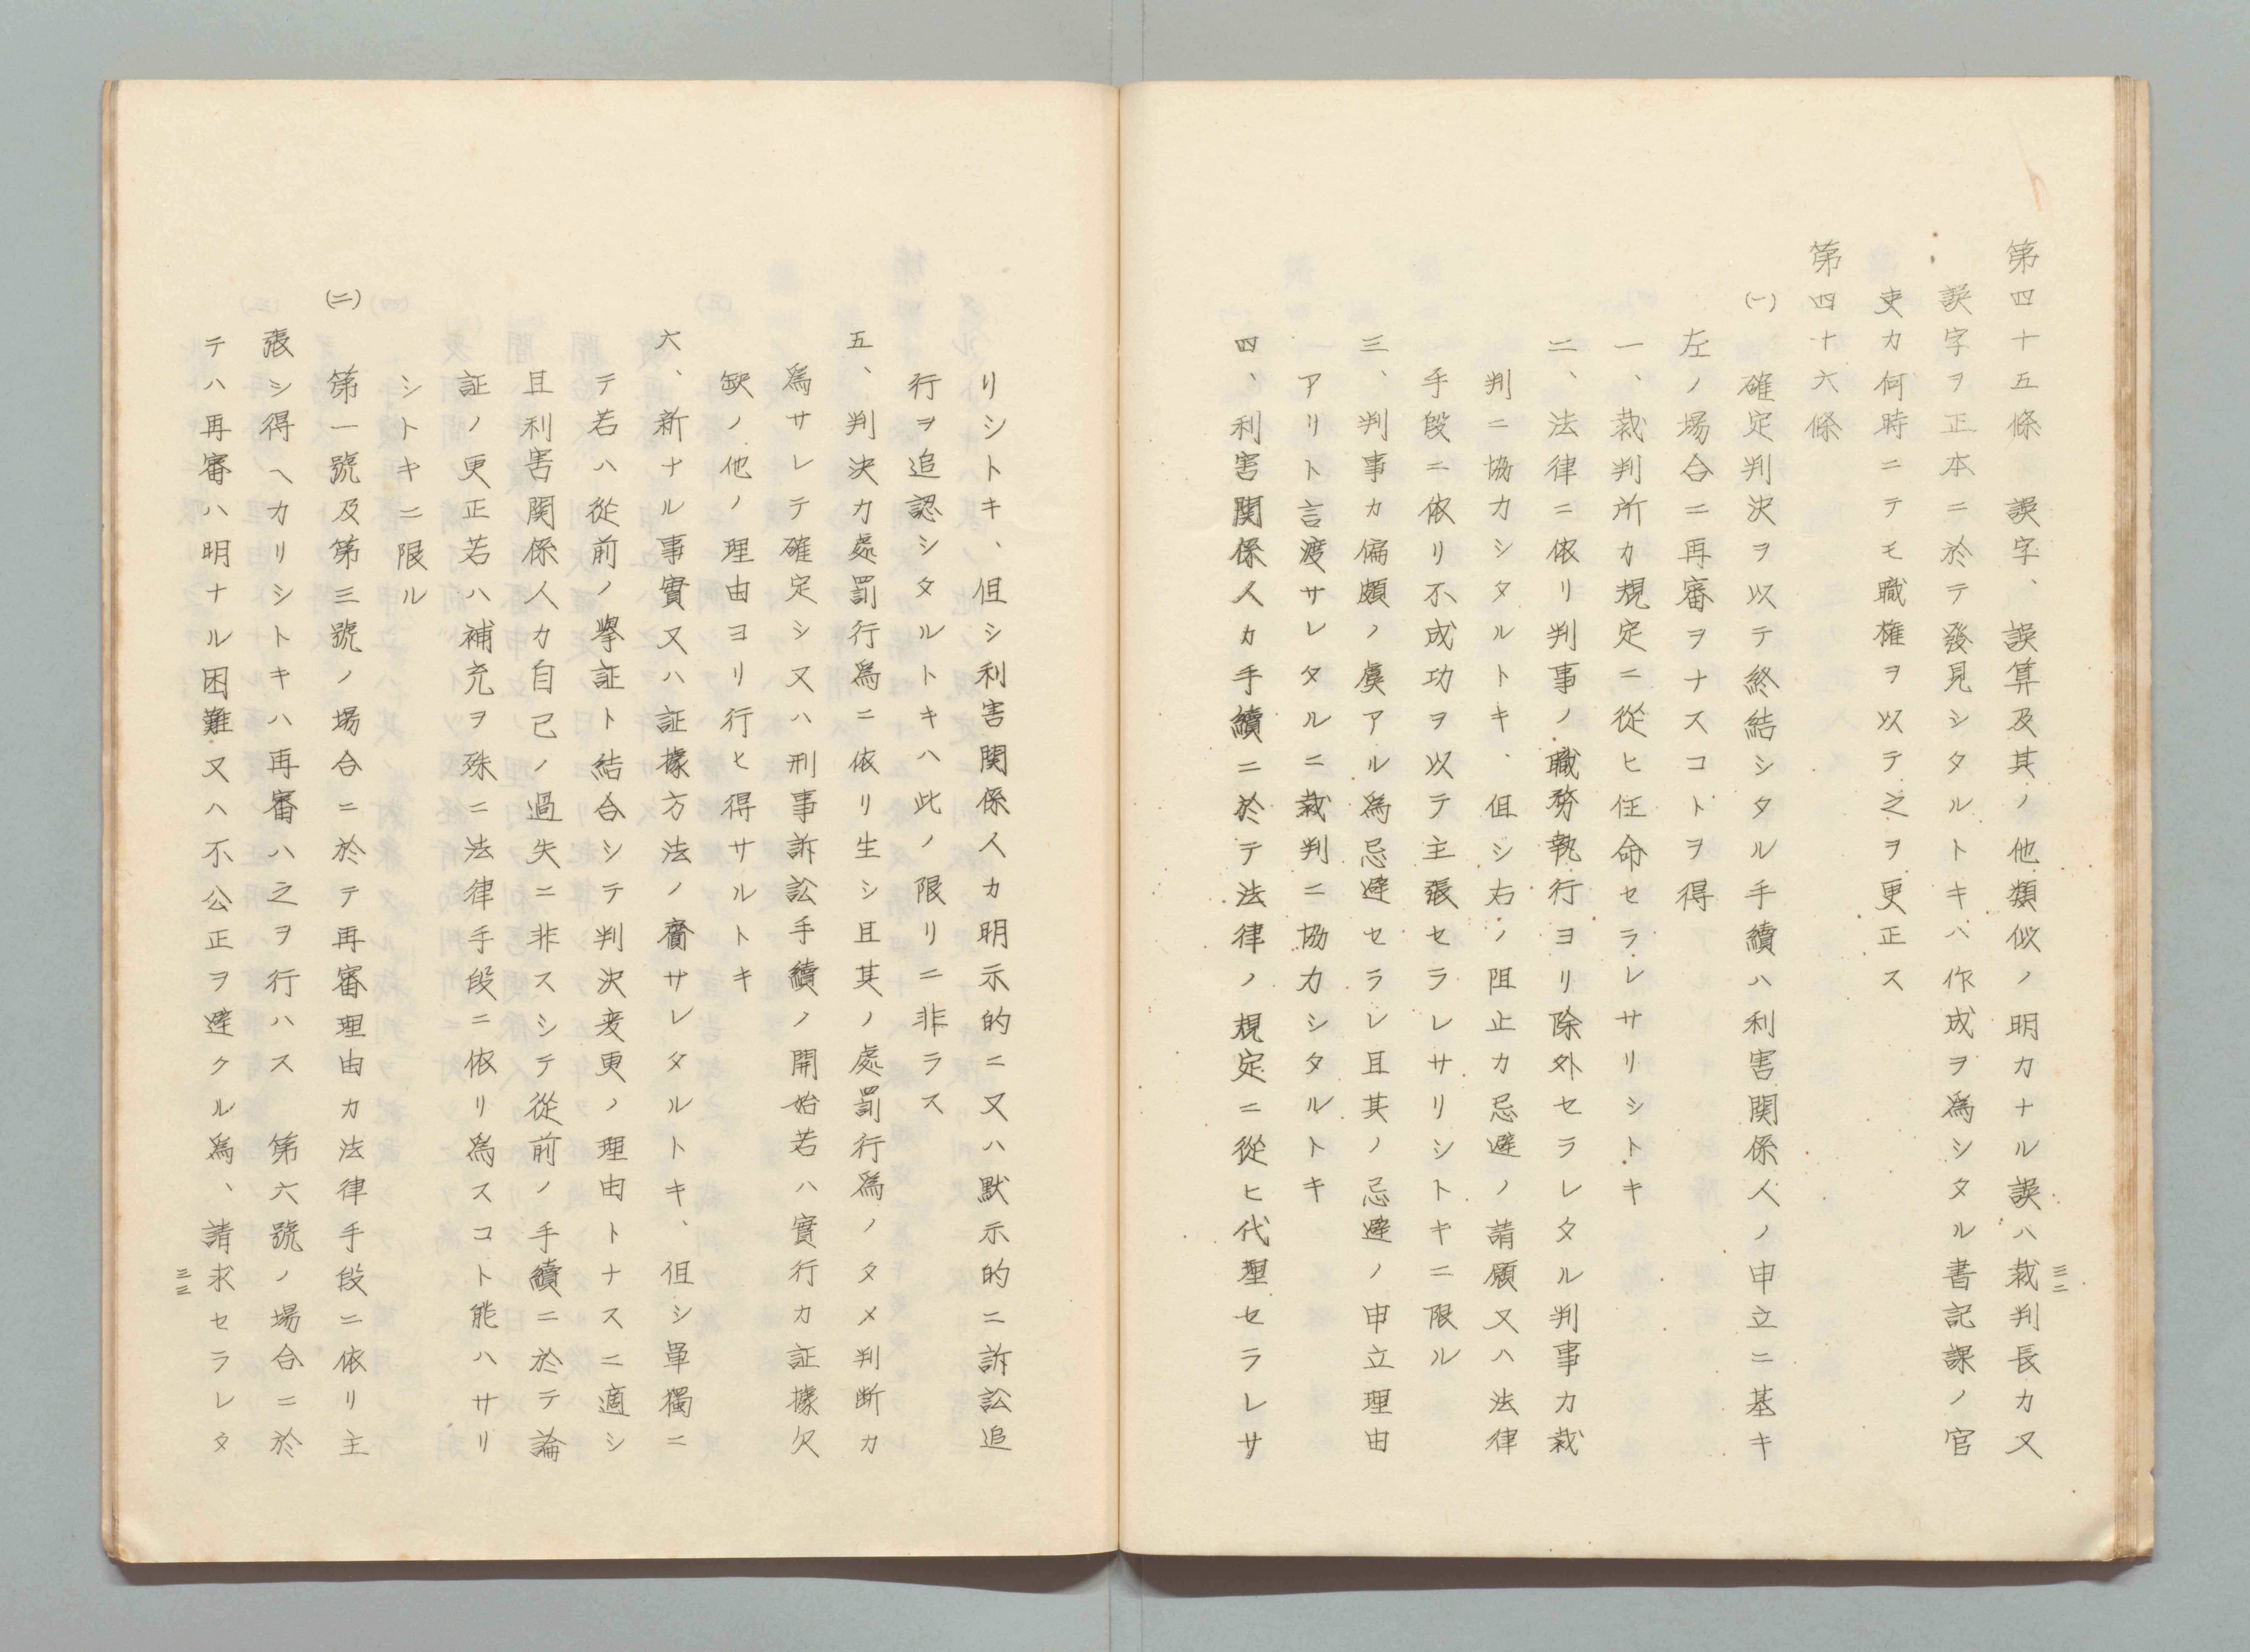 第四十五條　誤字、誤算及其ノ他類似ノ明カナル誤ハ裁判長カ又
誤字ヲ正本ニ於テ發見シタルトキハ作成ヲ爲シタル書記課ノ官
吏カ何時ニテモ職権ヲ以テ之ヲ更正ス
第四十六條
(一)　確定判決ヲ以テ終結シタル手續ハ利害関係人ノ申立ニ基キ
左ノ場合ニ再審ヲナスコトヲ得
一、裁判所カ規定ニ從ヒ任命セラレサリシトキ
二、法律ニ依リ判事ノ職務執行ヨリ除外セラレタル判事カ裁
判ニ協力シタルトキ、但シ右ノ阻止カ忌避ノ請願又ハ法律
手段ニ依リ不成功ヲ以テ主張セラレサリシトキニ限ル
三、判事カ偏頗ノ虞アル爲忌避セラレ且其ノ忌避ノ申立理由
アリト言渡サレタルニ裁判ニ協力シタルトキ
四、利害関係人カ手續ニ於テ法律ノ規定ニ從ヒ代理セラレサ
三二
リシトキ、但シ利害関係人カ明示的ニ又ハ默示的ニ訴訟追
行ヲ追認シタルトキハ此ノ限リニ非ラス
五、判決カ處罰行爲ニ依リ生シ且其ノ處罰行爲ノタメ判断カ
爲サレテ確定シ又ハ刑事訴訟手續ノ開始若ハ實行カ証據欠
缺ノ他ノ理由ヨリ行ヒ得サルトキ
六、新ナル事實又ハ証據方法ノ齎サレタルトキ、但シ單獨ニ
テ若ハ從前ノ擧証ト結合シテ判決変更ノ理由トナスニ適シ
且利害関係人カ自己ノ過失ニ非スシテ從前ノ手續ニ於テ論
証ノ更正若ハ補充ヲ殊ニ法律手段ニ依リ爲スコト能ハサリ
シトキニ限ル
(二)　第一號及第三號ノ場合ニ於テ再審理由カ法律手段ニ依リ主
張シ得ヘカリシトキハ再審ハ之ヲ行ハス　第六號ノ場合ニ於
テハ再審ハ明ナル困難又ハ不公正ヲ避クル爲、請求セラレタ
三三